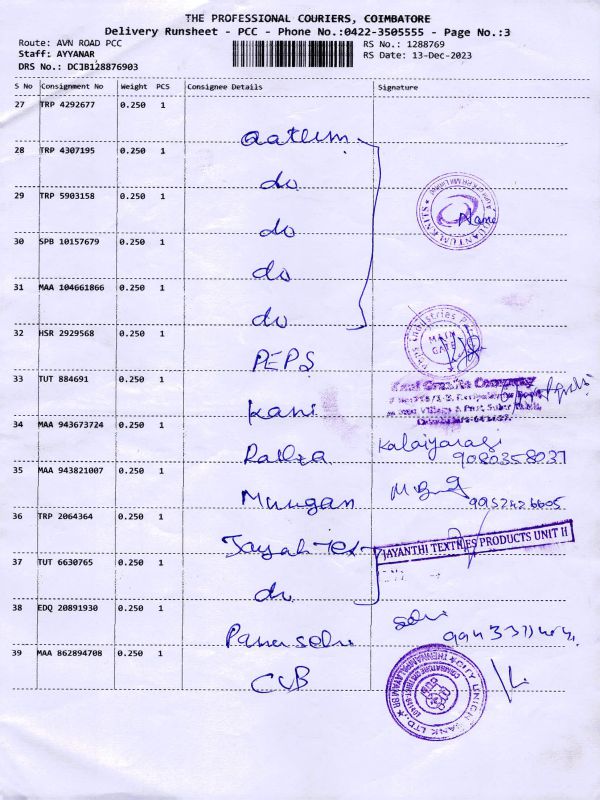 THE PROFESSIONAL COURIERS, COIMBATORE
Delivery Runsheet - PCC - Phone No.:0422-3505555 - Page No.:3
Route: AVN ROAD PCC
RS No.: 1288769
Staff: AYYANAR
RS Date: 13-Dec-2023
DRS No.: DCJB128876903
S No Consignment No Weight PCS Consignee Details Signature
27 TRP 4292677 0.250 1
28 TRP 4307195 0.250 1 do
29 TRP 5903158 0.250 1 do
QUANTUM KNITS
30 SPB 10157679 0.250 1 do
31 MAA 104661866 0.250 1 do
MAIN GATE
32 HSR 2929568 0.250 1 PEPS
33 TUT 884691 0.250 1 Kani
Granite Company
34 MAA 943673724 0.250 1 Kalaiyarasi
9080358037
35 MAA 943821007 0.250 1 Murugan
9952426605
36 TRP 2064364 0.250 1
JAYANTHI TEXTILES PRODUCTS UNIT II
37 TUT 6630765 0.250 1 do
38 EDQ 20891930 0.250 1 Selvi
39 MAA 862894708 0.250 1 CUB
CITY UNION BANK LTD.